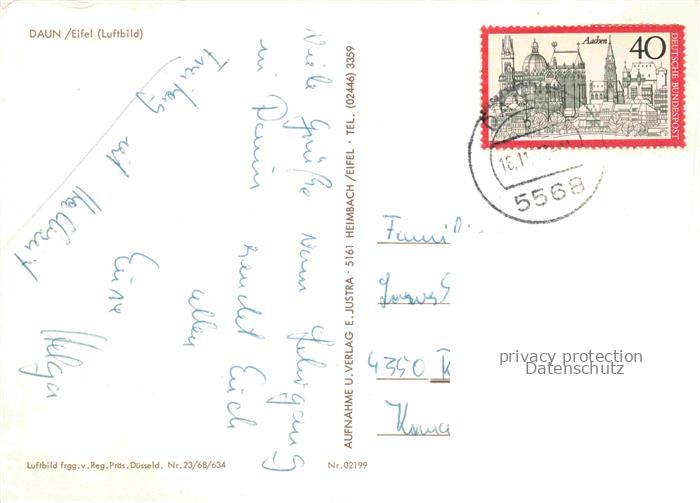 DAUN /Eifel (Luftbild)
Viele Grüße vom Lehrgang
in Daun sendet Euch
allen
Eure
Helga
Freitag ist
AUFNAHME U. VERLAG E. JUSTRA · 5161 HEIMBACH/EIFEL · TEL. (02446) 3359
Luftbild frgg. v. Reg. Präs. Düsseld. Nr. 23/68/634
Nr. 02199
Aachen
40
DEUTSCHE BUNDESPOST
18.11.
5568
Fami
4350
privacy protection
Datenschutz